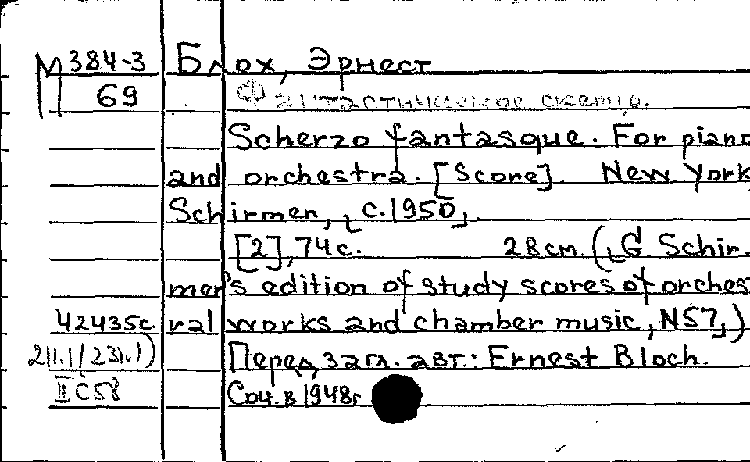 М 384-3 Блох, Эрнест
69 Фантастическое скерцо.
Scherzo fantasque. For piano
and orchestra. [Score]. New York,
Schirmer, [c. 1950].
[2], 74 с. 28 см. (G Schir-
mer's edition of study scores of orches
42435с ral works and chamber music, N57,)
Перед загл. авт.: Ernest Bloch.
II C58 Соч. в 1948г